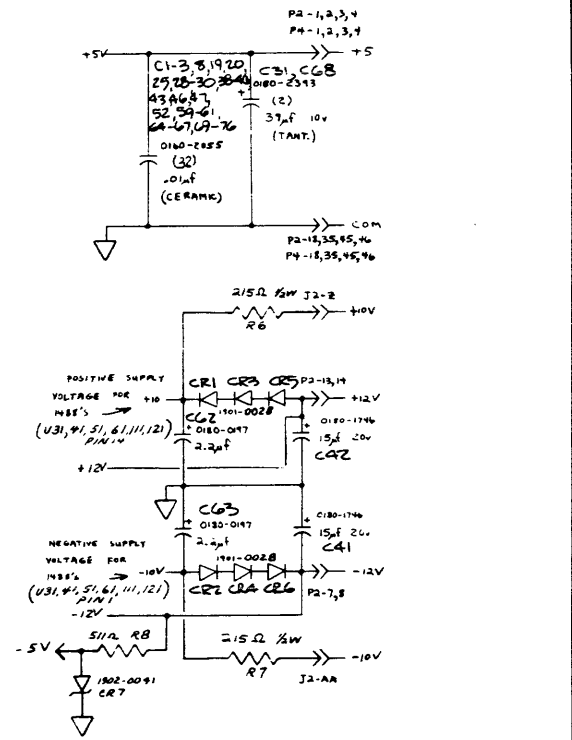 P2-1,2,3,4
P4-1,2,3,4
+5V
+5
C1-3,8,19,20,
25,28-30,38-40
43,46,47,
52,59-61,
64-67,69-76
0160-2055
(32)
.01µf
(CERAMIC)
C31, C68
+ 0180-2393
(2)
39µf 10v
(TANT.)
COM
P2-18,35,45,46
P4-18,35,45,46
215Ω ½W
R6
J2-Z
+10V
POSITIVE SUPPLY
VOLTAGE FOR
1488'S
(U31,41,51,61,111,121)
PIN 14
+10
CR1 CR3 CR5
1901-0028
P2-13,14
+12V
C62
+ 0180-0197
2.2µf
+ 0180-1746
15µf 20v
C42
+12V
C63
+ 0180-0197
2.2µf
+ 0180-1746
15µf 20v
C41
NEGATIVE SUPPLY
VOLTAGE FOR
1488'S
(U31,41,51,61,111,121)
PIN 1
-10V
1901-0028
CR2 CR4 CR6
-12V
P2-7,8
-12V
511Ω R8
-5V
1902-0041
CR7
215Ω ½W
R7
-10V
J2-AA